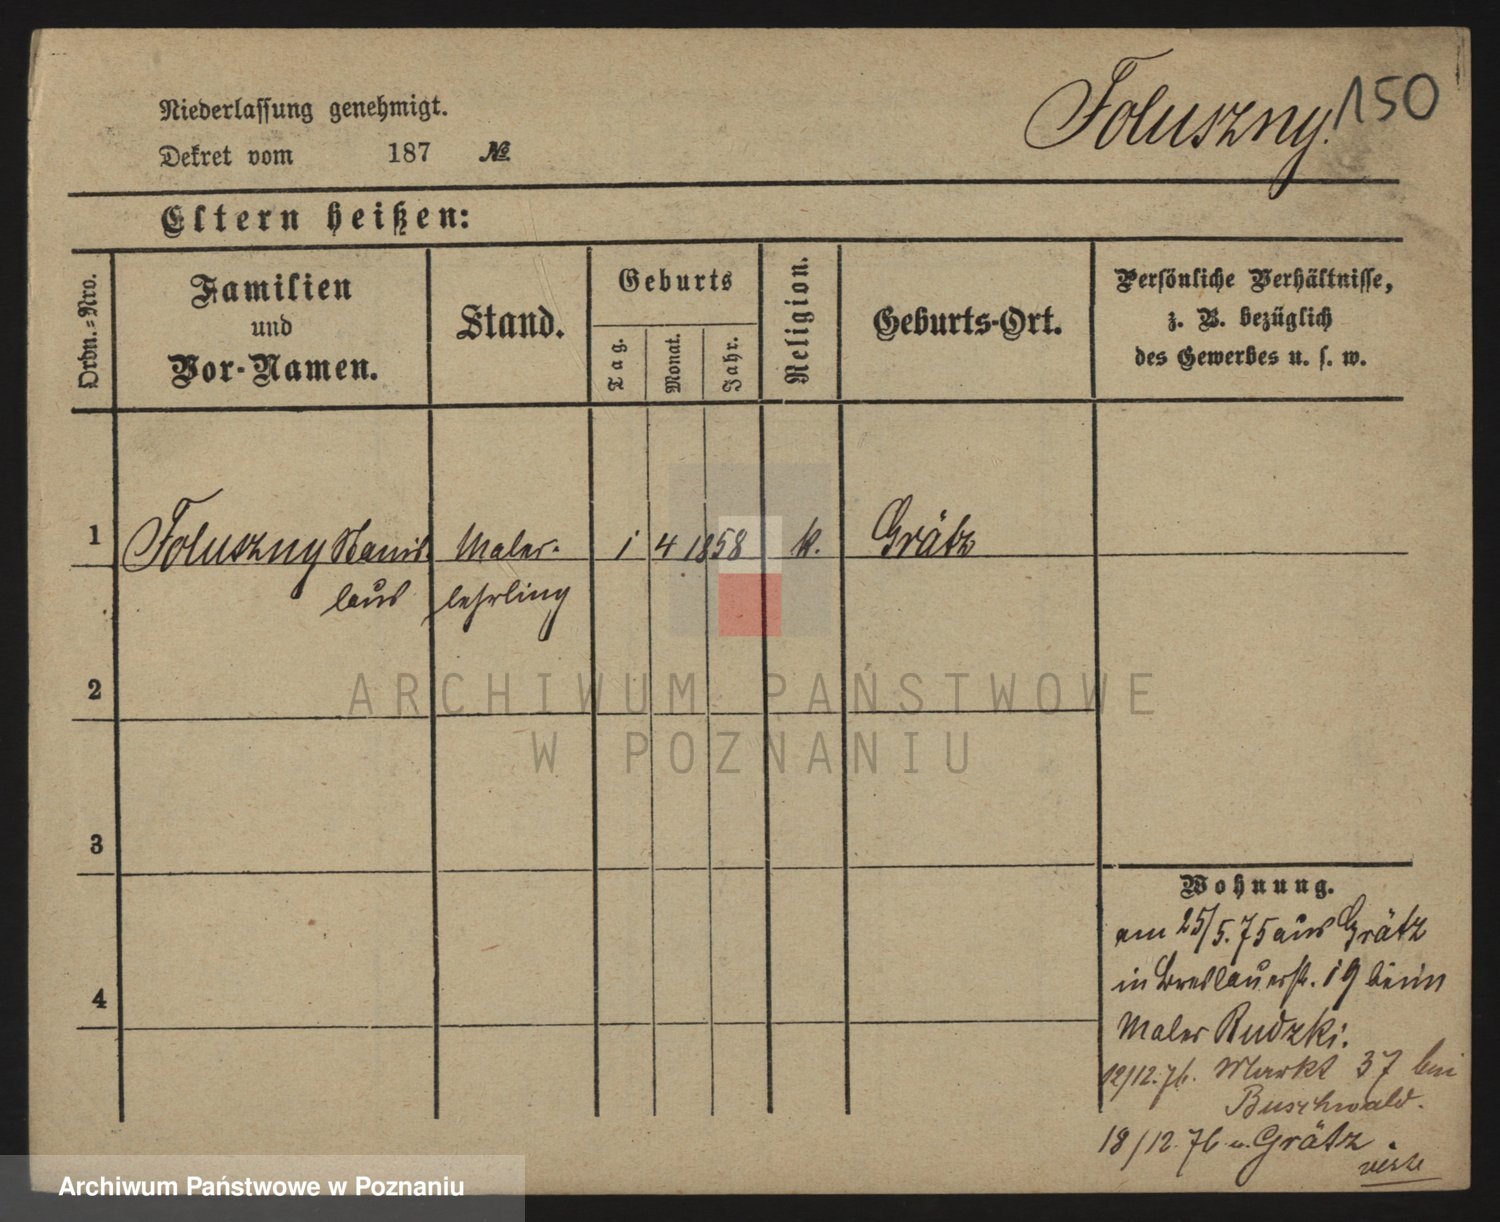 Foluszny. 150
Niederlassung genehmigt.
Dekret vom 187 №
Eltern heißen:
Ordn.=Nro.
Familien
und
Vor-Namen.
Stand.
Geburts
Tag.
Monat.
Jahr.
Religion.
Geburts-Ort.
Persönliche Verhältnisse,
z. B. bezüglich
des Gewerbes u. s. w.
1 Foluszny Stanis- Maler- 1 4 1858 k. Grätz
laus lehrling
2
3
4
Wohnung.
am 25/5.75 aus Grätz
in Breslauerstr. 19 beim
Maler Rudzki.
12/12.76. Markt 37 bei
Buschwald.
18/12.76 n. Grätz
ARCHIWUM PAŃSTWOWE
W POZNANIU
Archiwum Państwowe w Poznaniu